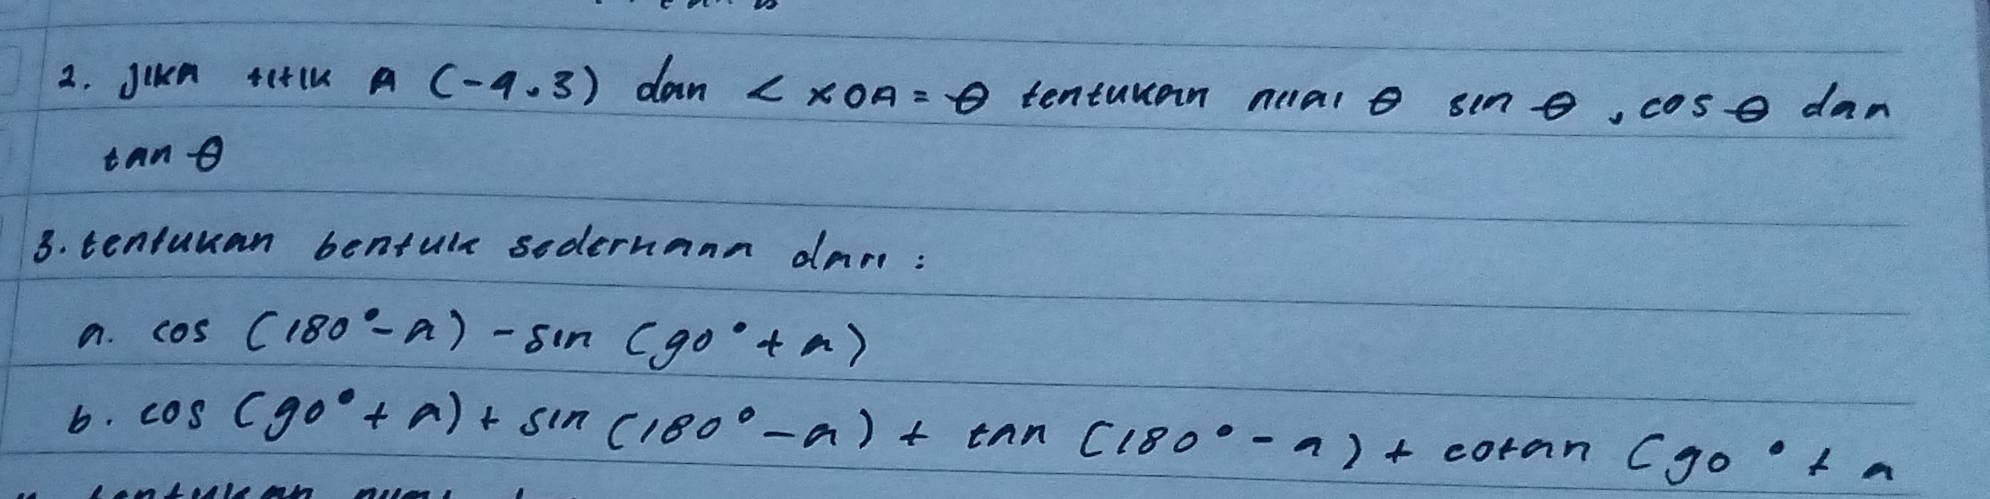 2. Jika titik A (-4,3) dan < XOA = θ tentukan nilai θ sin θ, cos θ dan
tan θ
3. tentukan bentuk sederhana dari :
a. cos (180° - a) - sin (90° + a)
b. cos (90° + a) + sin (180° - a) + tan (180° - a) + cotan (90° + a
tentukan